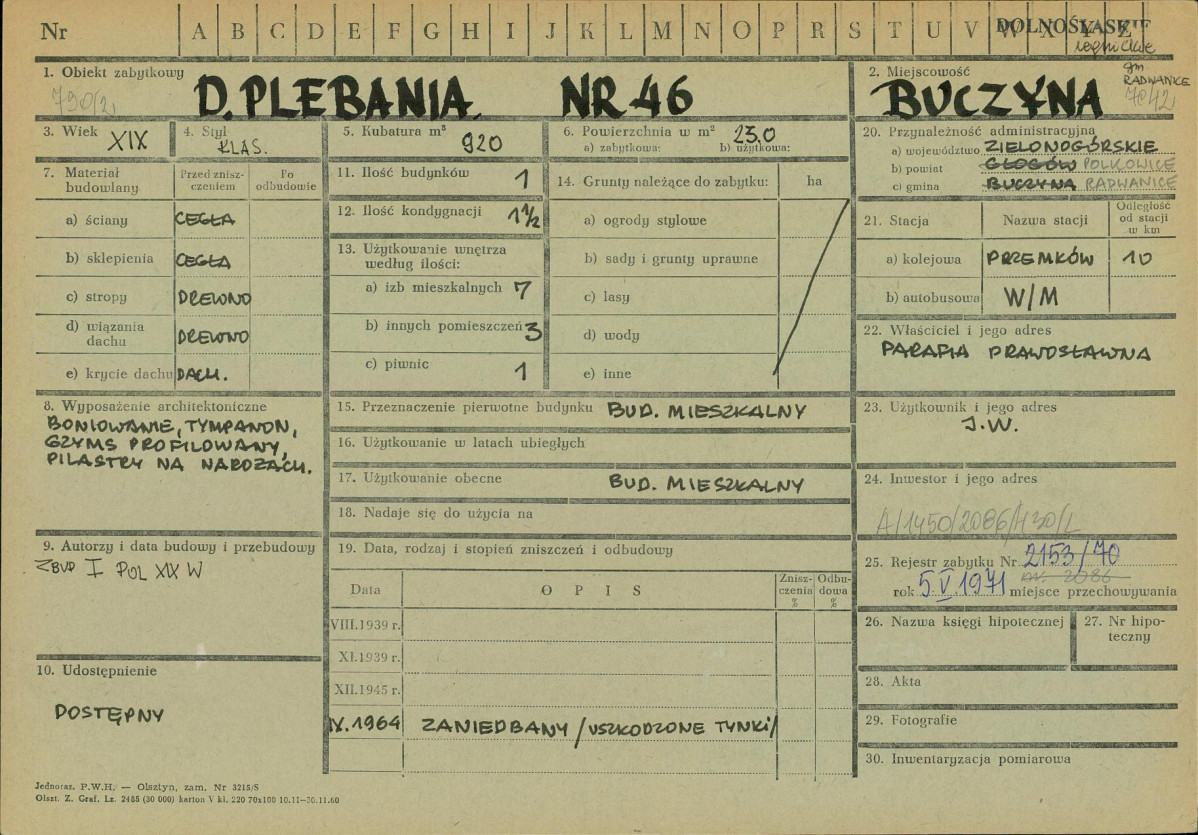 Nr A B C D E F G H I J K L M N O P R S T U V W X Y Z DOLNOŚLĄSKIE
legnickie
gm RADWANICE
1. Obiekt zabytkowy D. PLEBANIA. NR 46
790/2
2. Miejscowość BUCZYNA
7042
3. Wiek XIX
4. Styl KLAS.
5. Kubatura m³ 920
6. Powierzchnia w m² 230
a) zabytkowa: b) użytkowa:
7. Materiał budowlany Przed zniszczeniem Po odbudowie
a) ściany CEGŁA
b) sklepienia CEGŁA
c) stropy DREWNO
d) wiązania dachu DREWNO
e) krycie dachu DACH.
8. Wyposażenie architektoniczne
BONIOWANIE, TYMPANON,
GZYMS PROFILOWANY,
PILASTRY NA NAROŻACH.
9. Autorzy i data budowy i przebudowy
ZBUD I POŁ XIX W
10. Udostępnienie
DOSTĘPNY
11. Ilość budynków 1
12. Ilość kondygnacji 1½
13. Użytkowanie wnętrza
według ilości:
a) izb mieszkalnych 7
b) innych pomieszczeń 3
c) piwnic 1
14. Grunty należące do zabytku: ha
a) ogrody stylowe
b) sady i grunty uprawne
c) lasy
d) wody
e) inne
15. Przeznaczenie pierwotne budynku BUD. MIESZKALNY
16. Użytkowanie w latach ubiegłych
17. Użytkowanie obecne BUD. MIESZKALNY
18. Nadaje się do użycia na
19. Data, rodzaj i stopień zniszczeń i odbudowy
Data OPIS Zniszczenia % Odbudowa %
VIII.1939 r.
XI.1939 r.
XII.1945 r.
IX.1964 ZANIEDBANY /USZKODZONE TYNKI/
20. Przynależność administracyjna
a) województwo ZIELONOGÓRSKIE
b) powiat GŁOGÓW POLKOWICE
c) gmina BUCZYNA RADWANICE
21. Stacja Nazwa stacji Odległość od stacji w km
a) kolejowa PRZEMKÓW 10
b) autobusowa W/M
22. Właściciel i jego adres
PARAFIA PRAWOSŁAWNA
23. Użytkownik i jego adres
J.W.
24. Inwestor i jego adres
A/1450/2086/430/L
25. Rejestr zabytku Nr 2153/70
nr. 2086
rok 5.V.1971 miejsce przechowywania
26. Nazwa księgi hipotecznej
27. Nr hipoteczny
28. Akta
29. Fotografie
30. Inwentaryzacja pomiarowa
Jednoraz. P.W.H. — Olsztyn, zam. Nr 3215/S
Olszt. Z. Graf. Lz. 2485 (30 000) karton V kl. 220 70x100 10.11—30.11.60